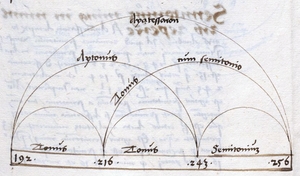 dyatessaron
dytonus
cum semitonio
Tonus
Tonus
Tonus
Semitonium
192
·216
·243·
·256